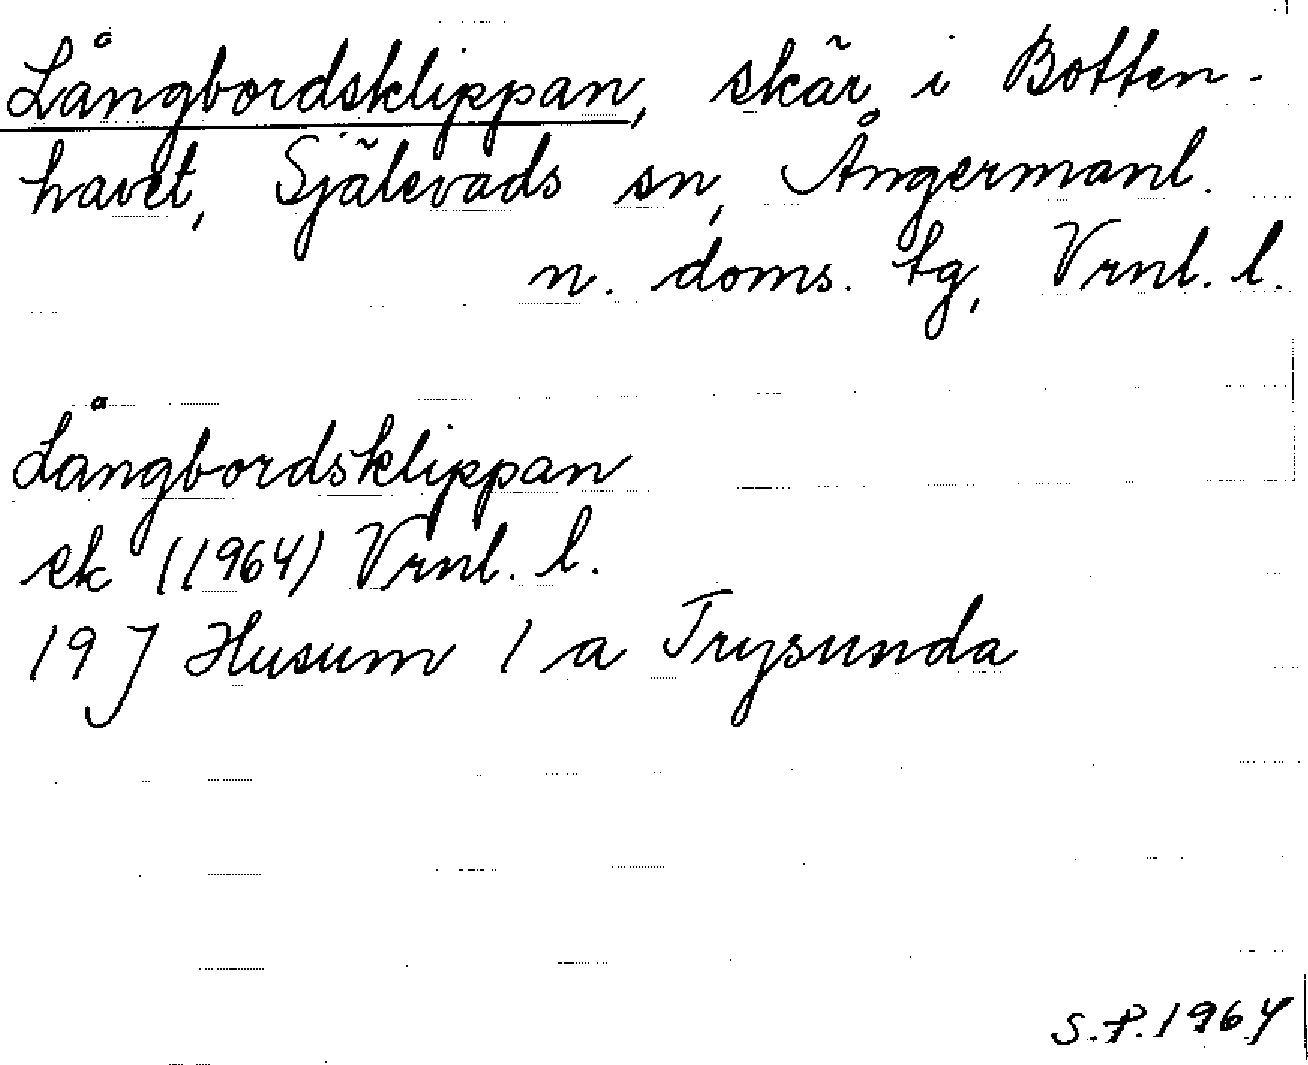 Långbordsklippan, skär i Botten-
havet, Själevads sn, Ångermanl.
n. doms. tg, Vrnl. l.
Långbordsklippan
ek (1964) Vrnl. l.
19 J Husum 1 a Trysunda
S.P. 1964